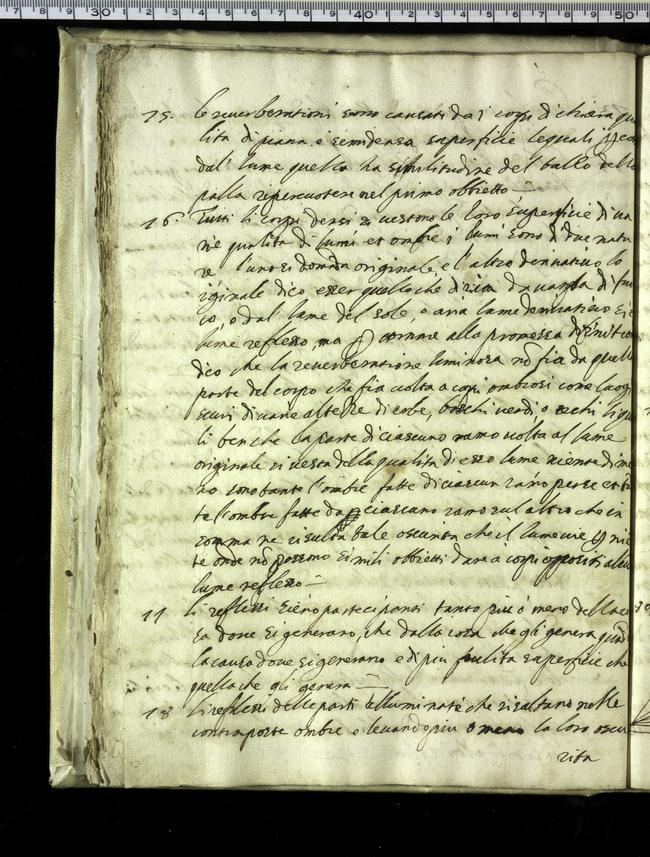 15. le reverberationi sono causati da i corpi di chiara qua
lita di piana e semidensa superficie lequali percos
dal lume quello ha similitudine del ballo della
palla ripercuotere nel primo obbietto
16. Tutti li corpi densi si vestono le loro superficie di va
rie qualita di lumi et ombre i lumi sono di due natu
re l'uno si domāda originale, e l'altro derivativo lo
riginale dico esser quello che deriva da vampa di fuo
co, o dal lume del sole, o aria lume derivativo sie
lume reflesso, ma p tornare alla promessa difinitione
dico che la reverberatione luminosa nō fia da quella
parte del corpo che fia volta a corpi ombrosi come luoghi
scuri di varie altezze di erbe, boschi verdi o secchi liqua
li benche la parte di ciascuno ramo volta al lume
originale si vesta della qualita di esso lume niente dime
no sono tante l'ombre fatte di ciascun ramo per se et tan
te l'ombre fatte da ciascuno ramo sul altro che in
somma ne risulta tale oscurita che il lume vi e p nien
te onde nō possono simili obbietti dare a corpi oppositi alcun
lume reflesso
17 li reflessi sieno partecipanti tanto piu o meno della co
sa dove si generano, che della cosa che gli genera quāto
la causa dove si generano e di piu pulita superficie che
quella che gli genera
18 li reflessi delle parti illuminate che risaltano nelle
contraposte ombre o levando piu o meno la loro oscu
rita